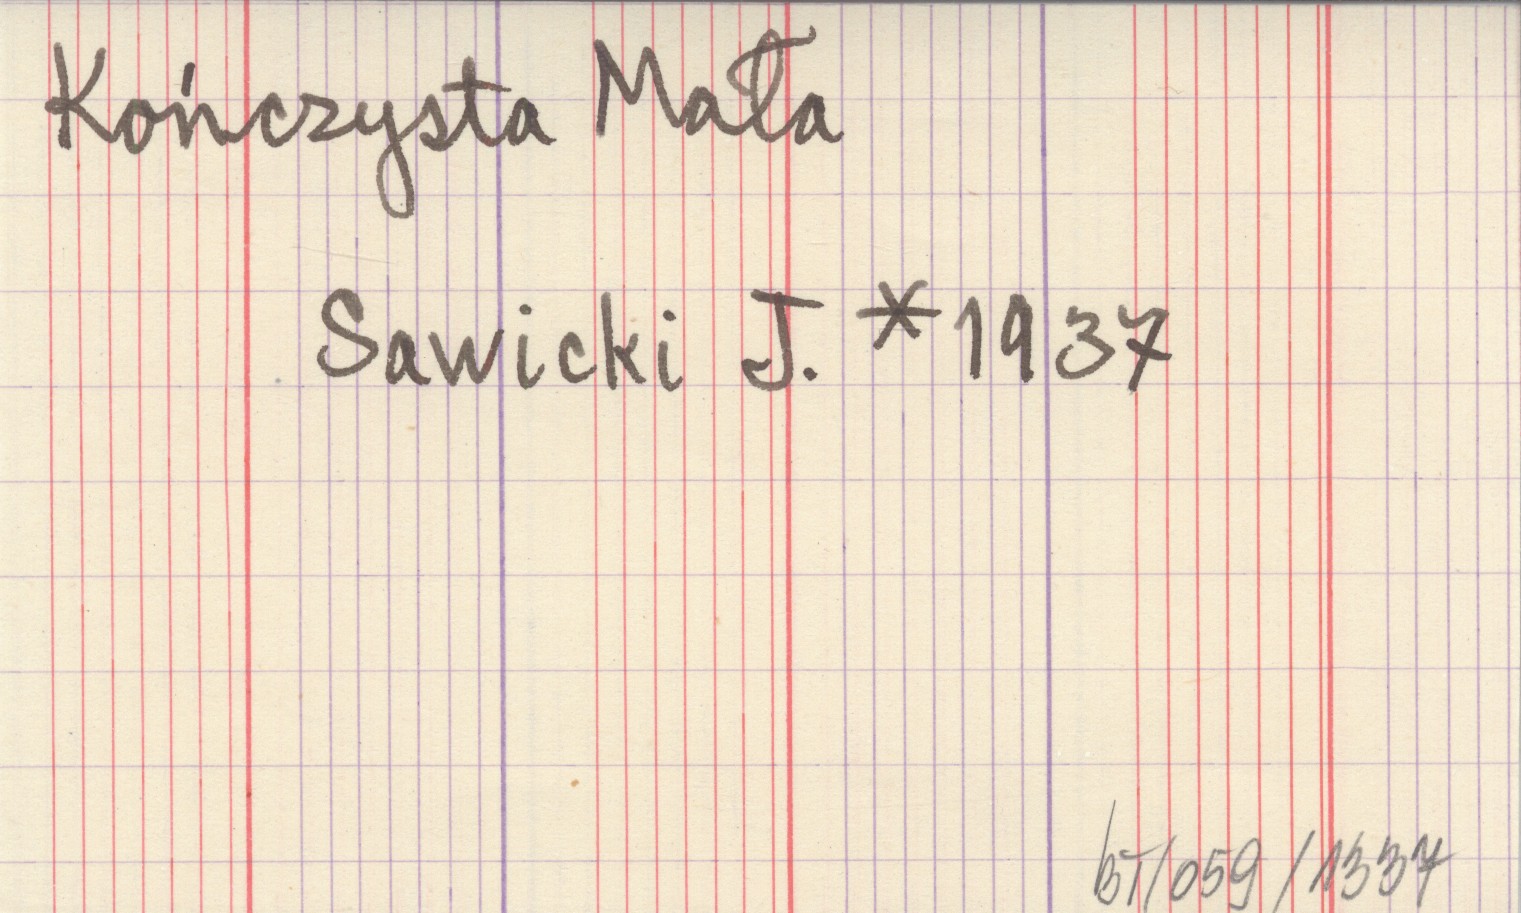 Kończysta Mała
Sawicki J. *1937
bT/059/1337